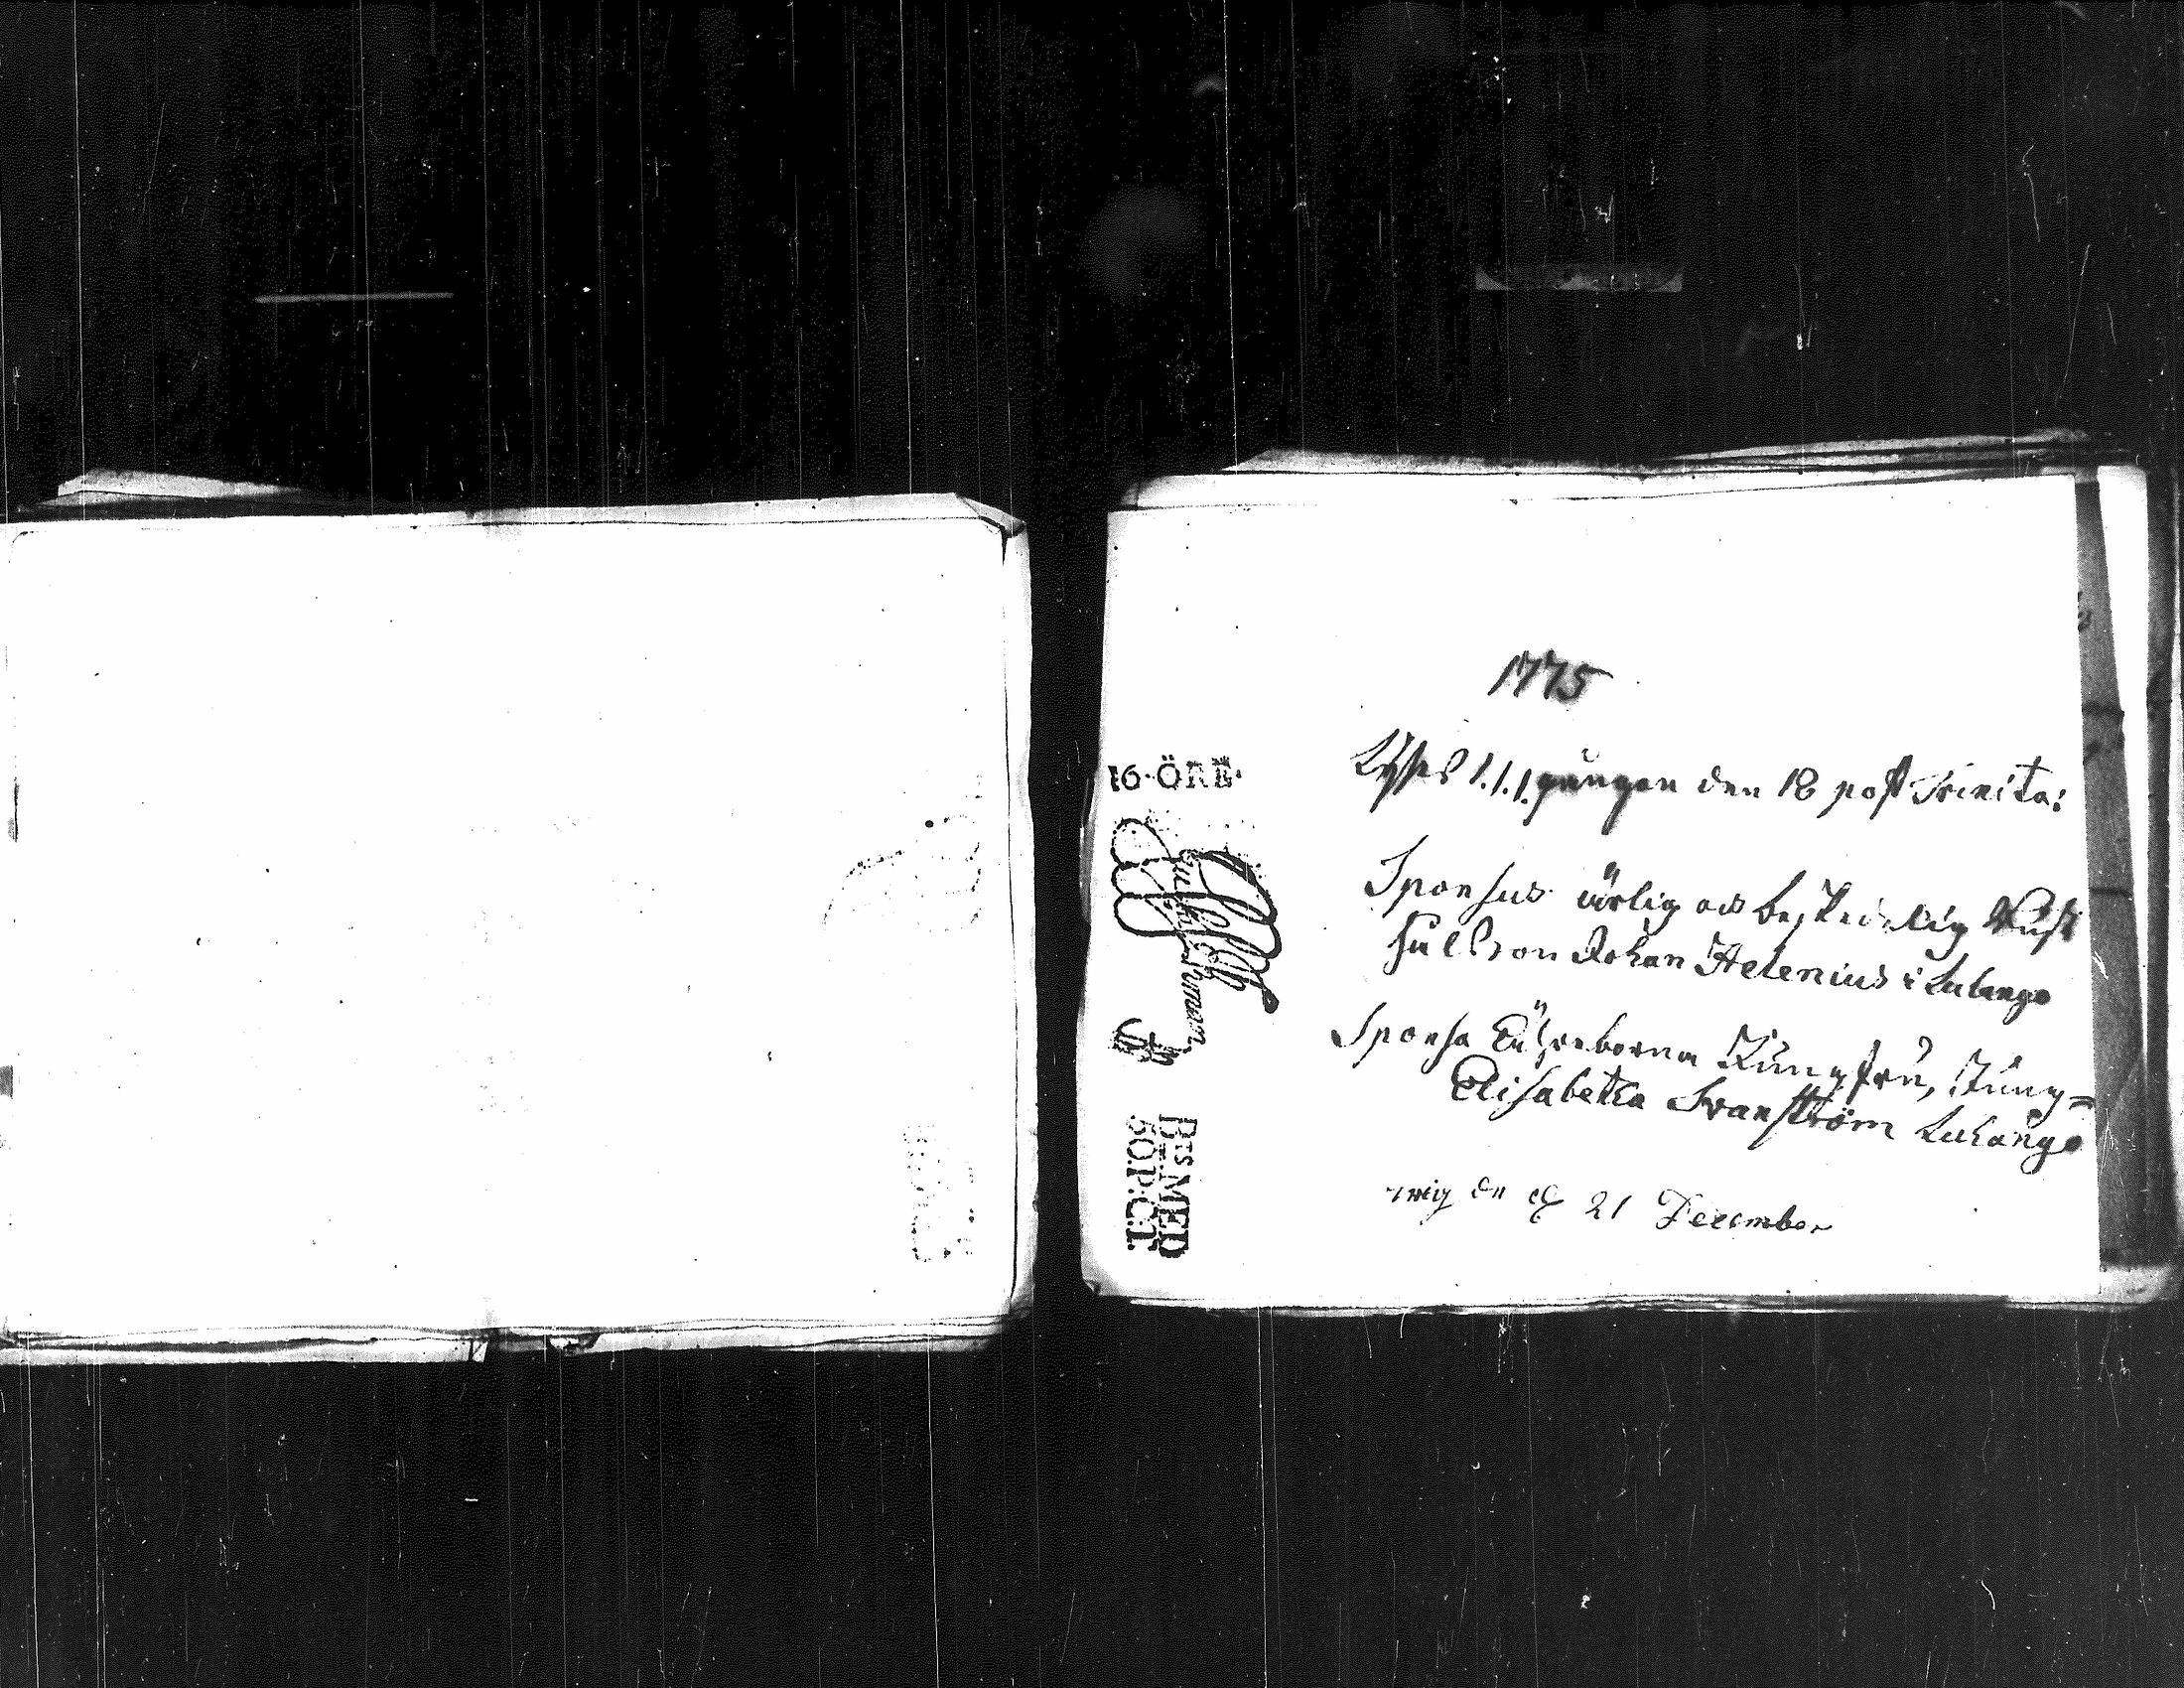 1775
Lyses 1.1.1. gången den 18 post Trinita:
Sponsus ärlig ock beskedelig Rust
hålls son Johan Helenius i Luhango
Sponsa Ähreborna Jungfru, Jung=
Elisabetha Svanström Luhango
wig den 21 December
16·ÖRE·
BTS MED
50.P:CT.